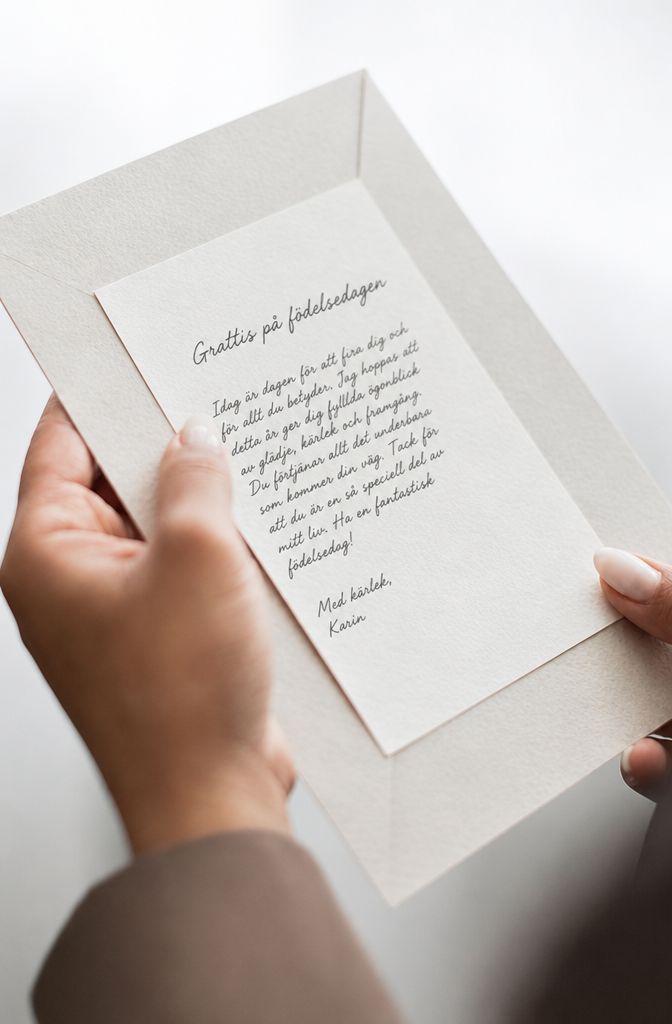 Grattis på födelsedagen
Idag är dagen för att fira dig och
för allt du betyder. Jag hoppas att
detta år ger dig fylllda ögonblick
av glädje, kärlek och framgång.
Du förtjänar allt det underbara
som kommer din väg. Tack för
att du är en så speciell del av
mitt liv. Ha en fantastisk
födelsedag!
Med kärlek,
Karin